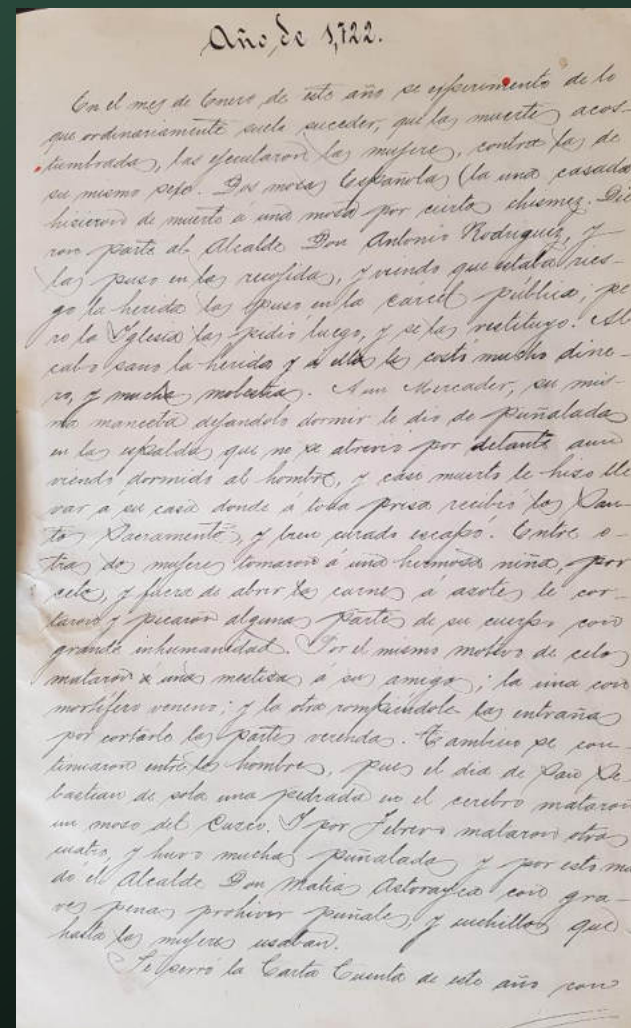 Año de 1,722.
En el mes de Enero de este año se esperimentó de lo
que ordinariamente suele suceder, que las muertes acos-
tumbradas, las ejecutaron las mujeres, contra las de
su mismo sexo. Dos mosas Españolas (la una casada
hisieron de muerte á una mosa por ciertos chismes. Die
ron parte al Alcalde Don Antonio Rodriguez, y
las puso en las recojidas, y viendo que estaba ries-
go la herida las puso en la cárcel pública; pe
ro la Yglesia las pidio luego, y se las restituyo. Al
cabo sano la herida y a ellas les costó mucho dine-
ro, y mucha molestia. A un Mercader, su mis-
ma manceba dejandolo dormir le dio de puñaladas
en las espaldas que no se atrevio por delante aun
viendo dormido al hombre, y casi muerto le hiso lle
var a su casa donde á toda prisa recibió los San-
tos Sacramentos, y bien curado escapó. Entre o-
tras dos mujeres tomaron á una hermosa niña, por
celos, y fuera de abrir las carnes á azotes le cor-
taron y picaron algunas partes de su cuerpo con
grande inhumanidad. Por el mismo motivo de celos
mataron a una mestisa á su amigo; la una con
mortífero veneno; y la otra rompiendole las entrañas
por cortarle las partes verendas. Tambien se con-
tinuaron entre los hombres, pues el dia de San Se-
bastian de sola una pedrada en el cerebro mataron
un moso del Cuzco. Y por Febrero mataron otros
cuatro, y huvo muchas puñaladas y por esto man
do el Alcalde Don Matias con gra-
ves penas prohivir puñales, y cuchillos que
hasta las mujeres usaban.
Se serró la Carta Cuenta de este año con